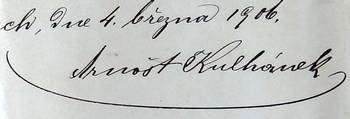 ch, dne 4. března 1906.
Arnošt Kulhánek